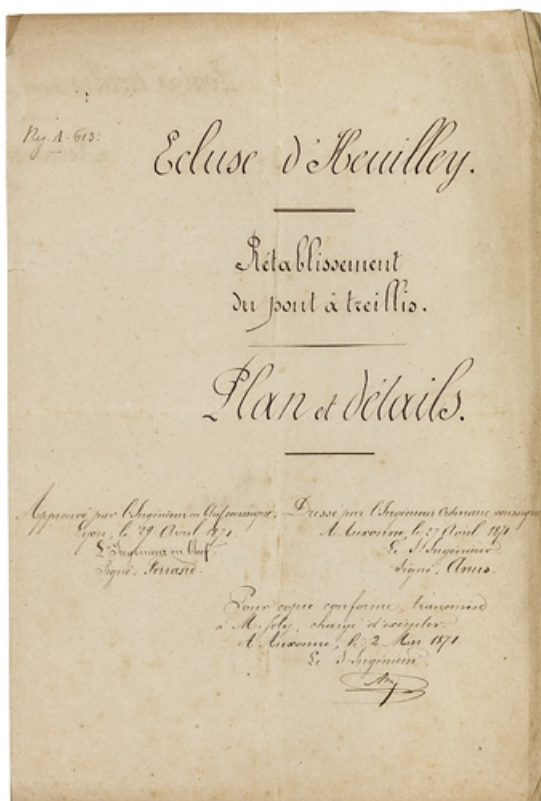 Reg. A - 613:
Ecluse d'Heuilley.
Rétablissement
du pont à treillis.
Plan et détails.
Approuvé par l'Ingénieur en Chef soussigné.
Lyon, le 29 Avril 1871.
L'Ingénieur en Chef.
Signé: Ferrand.
Dressé par l'Ingénieur Ordinaire soussigné
A Auxonne, le 27 Avril 1871
Signé:
Pour copie conforme, transmise
à M. Joly, chargé d'exécuter.
A Auxonne, le 2 Mai 1871